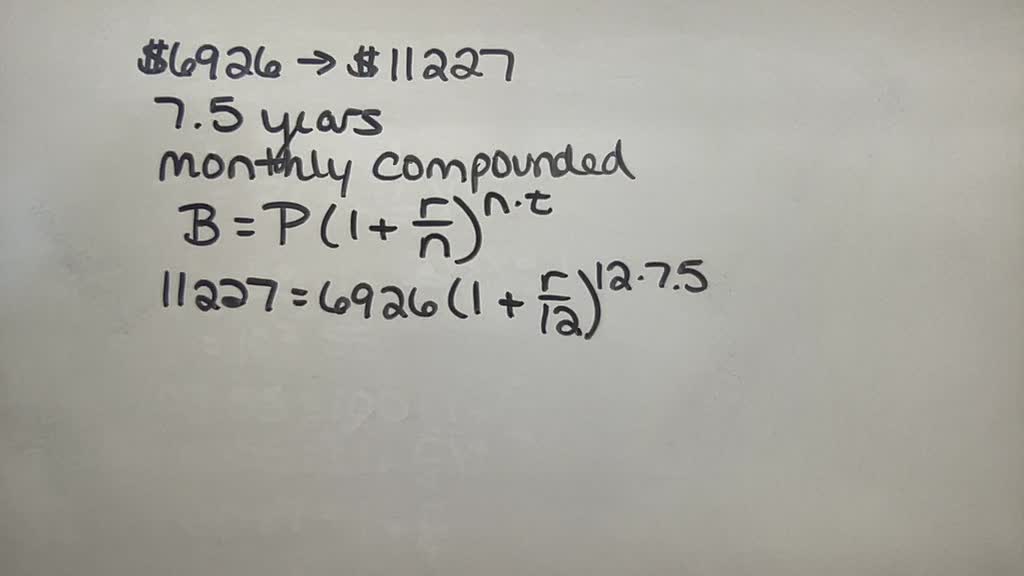 $6926 → $11227
7.5 years
monthly compounded
B = P(1 + r/n)^n·t
11227 = 6926(1 + r/12)^12·7.5